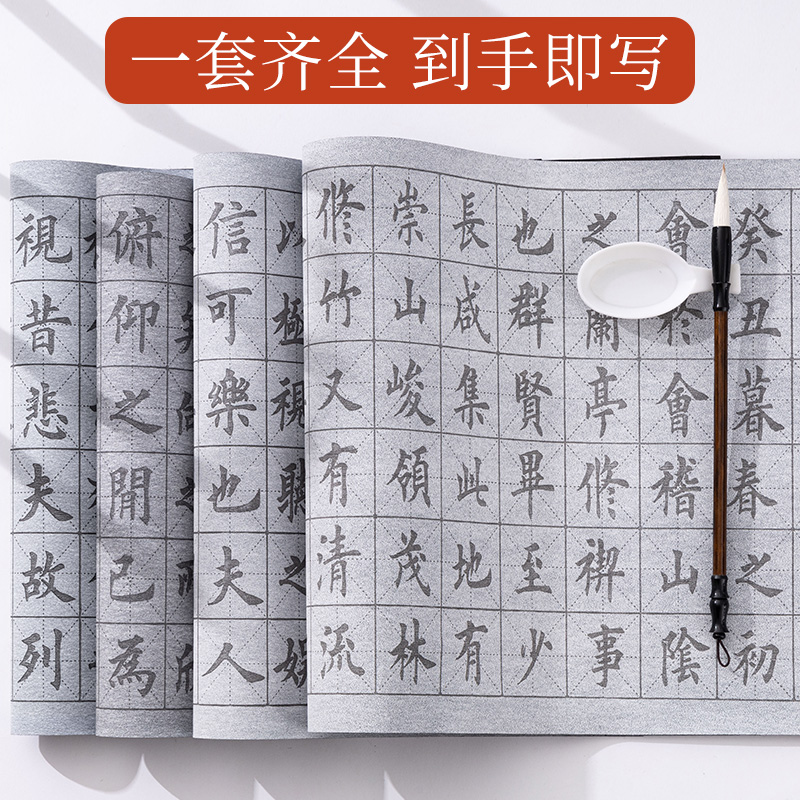 一套齐全 到手即写
癸丑暮春之初
會扵會稽山陰
之蘭亭脩禊事
也群賢畢至少
長咸集此地有
崇山峻領茂林
脩竹又有清流
以極視聽之娛
信可樂也夫人
之矣向之所欣
俯仰之閒已為
視昔悲夫故列